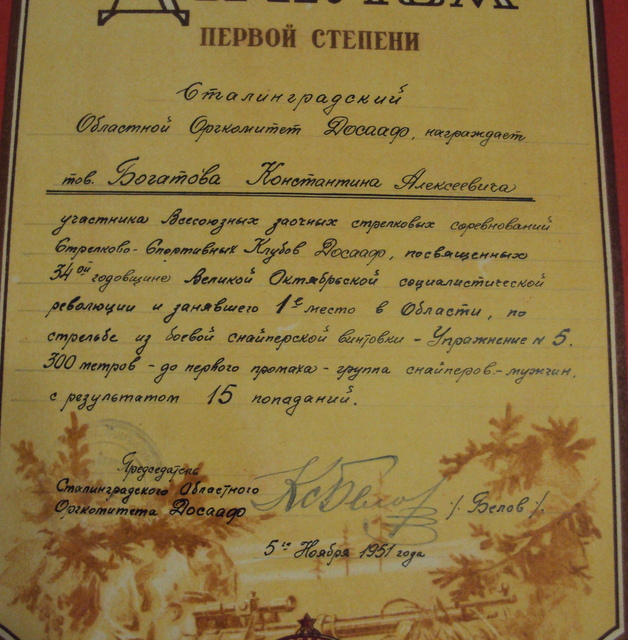 ДИПЛОМ
ПЕРВОЙ СТЕПЕНИ
Сталинградский
Областной Оргкомитет Досааф, награждает
тов. Богатова Константина Алексеевича
участника Всесоюзных заочных стрелковых соревнований
Стрелково-Спортивных Клубов Досааф, посвященных
34ой годовщине Великой Октябрьской социалистической
революции и занявшего 1е место в Области, по
стрельбе из боевой снайперской винтовки - Упражнение № 5.
300 метров - до первого промаха - группа снайперов - мужчин,
с результатом 15 попаданий.
Председатель
Сталинградского Областного
Оргкомитета Досааф
/Белов/.
5го Ноября 1951 года